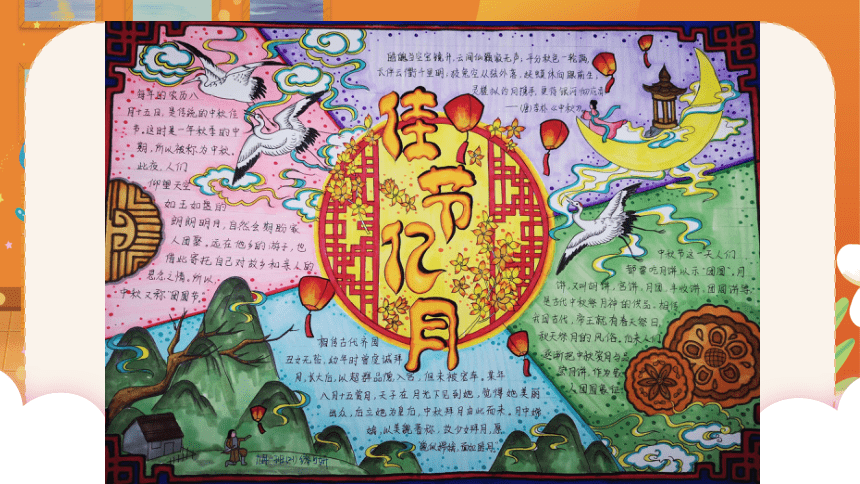 佳
节
亿
月
每年的农历八
月十五日,是传统的中秋佳
节。这时是一年秋季的中
期,所以被称为中秋。
此夜,人们
仰望天空
如玉如盘的
朗朗明月,自然会期盼家
人团聚。远在他乡的游子,也
借此寄托自己对故乡和亲人的
思念之情。所以,
中秋又称“团圆节”
皓魄当空宝镜升,云间仙籁寂无声;平分秋色一轮满,
长伴云衢千里明;狡兔空从弦外落,妖蟆休向眼前生;
灵槎拟约同携手,更待银河彻底清
——(唐)李朴《中秋》
中秋节这一天人们
都要吃月饼以示“团圆”。月
饼,又叫胡饼、宫饼、月团、丰收饼、团圆饼等
是古代中秋祭月神的供品。相传
我国古代,帝王就有春天祭日、
秋天祭月的风俗。
人团圆象征
相传古代齐国
丑女无盐,幼年时曾虔诚拜
月,长大后,以超群品德入宫,但未被宠幸。某年
八月十五赏月,天子在月光下见到她,觉得她美丽
出众,后立她为皇后,中秋拜月由此而来。月中嫦
娥,以美貌著称,故少女拜月,愿
貌似嫦娥,面如皓月。